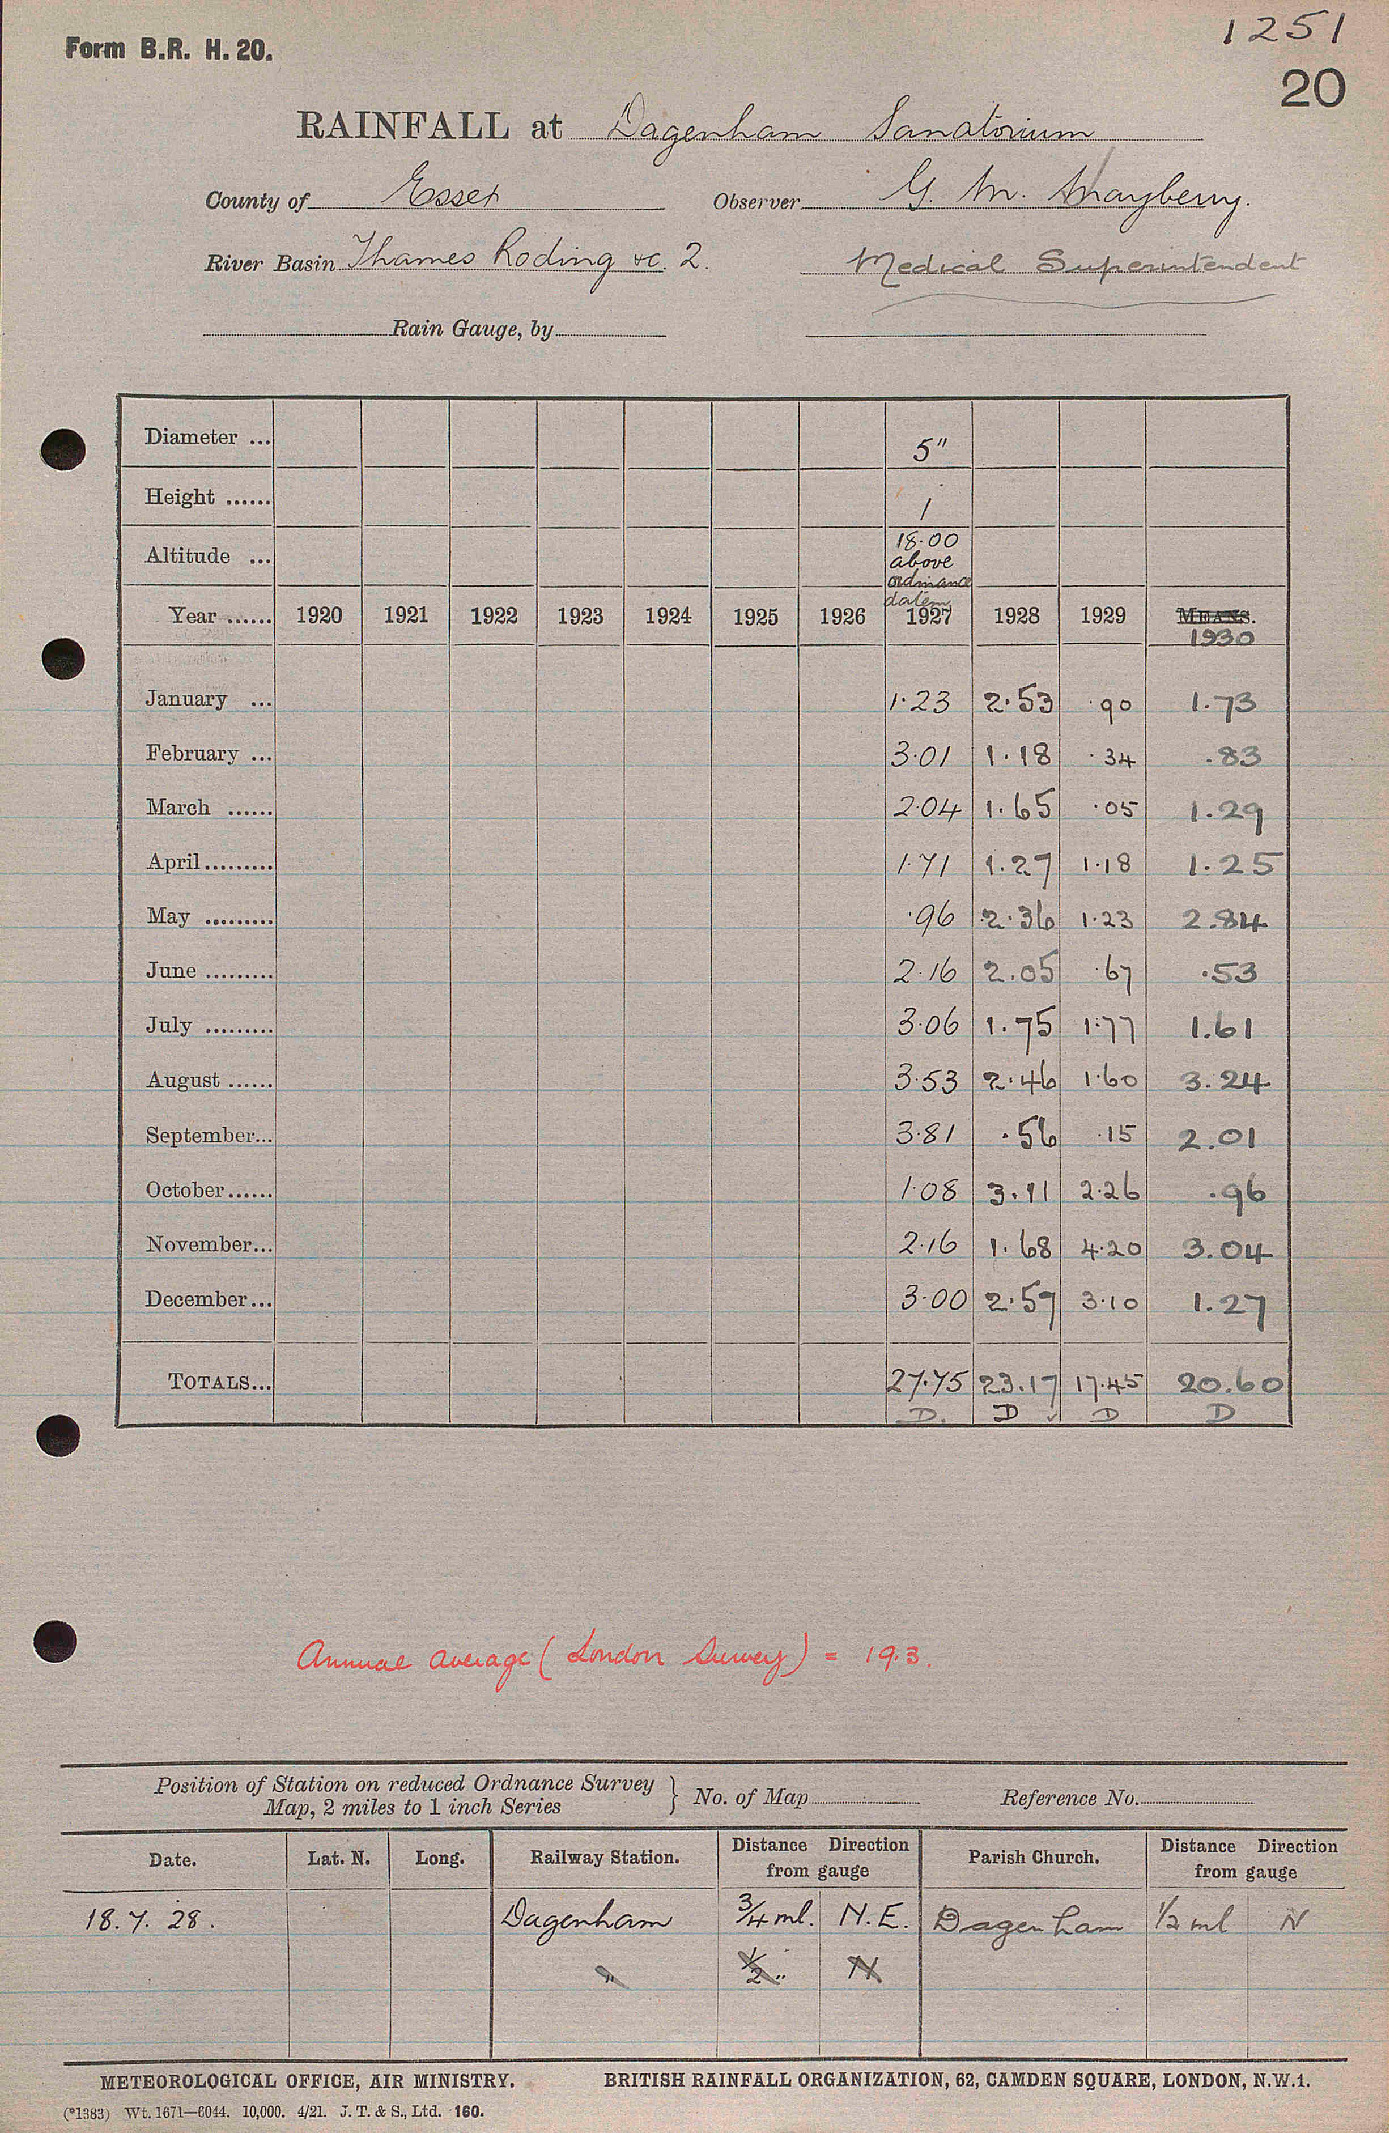 1251
Form B.R. H. 20.
20
RAINFALL at Dagenham Sanatorium
County of Essex Observer G. M. Mayberry.
River Basin Thames Roding &c. 2. Medical Superintendent
Rain Gauge, by
Diameter ... 5"
Height ...... 1
Altitude ... 18.00 above ordinance datem
Year ...... 1920 1921 1922 1923 1924 1925 1926 1927 1928 1929 MEANS.
1930
January ... 1.23 2.53 .90 1.73
February ... 3.01 1.18 .34 .83
March ...... 2.04 1.65 .05 1.29
April ......... 1.71 1.27 1.18 1.25
May ......... .96 2.36 1.23 2.84
June ......... 2.16 2.05 .67 .53
July ......... 3.06 1.75 1.77 1.61
August ...... 3.53 2.46 1.60 3.24
September... 3.81 .56 .15 2.01
October ...... 1.08 3.11 2.26 .96
November... 2.16 1.68 4.20 3.04
December... 3.00 2.57 3.10 1.27
TOTALS... 27.75 23.17 17.45 20.60
D. D ✓ D D
Annual average (London Survey) = 19.3.
Position of Station on reduced Ordnance Survey Map, 2 miles to 1 inch Series } No. of Map Reference No.
Date. Lat. N. Long. Railway Station. Distance Direction from gauge Parish Church. Distance Direction from gauge
18.7.28. Dagenham 3/4 ml. N.E. Dagenham 1/2 ml N
" 1/2 " N
METEOROLOGICAL OFFICE, AIR MINISTRY. BRITISH RAINFALL ORGANIZATION, 62, CAMDEN SQUARE, LONDON, N.W.1.
(*1383) Wt. 1671—6044. 10,000. 4/21. J. T. & S., Ltd. 160.